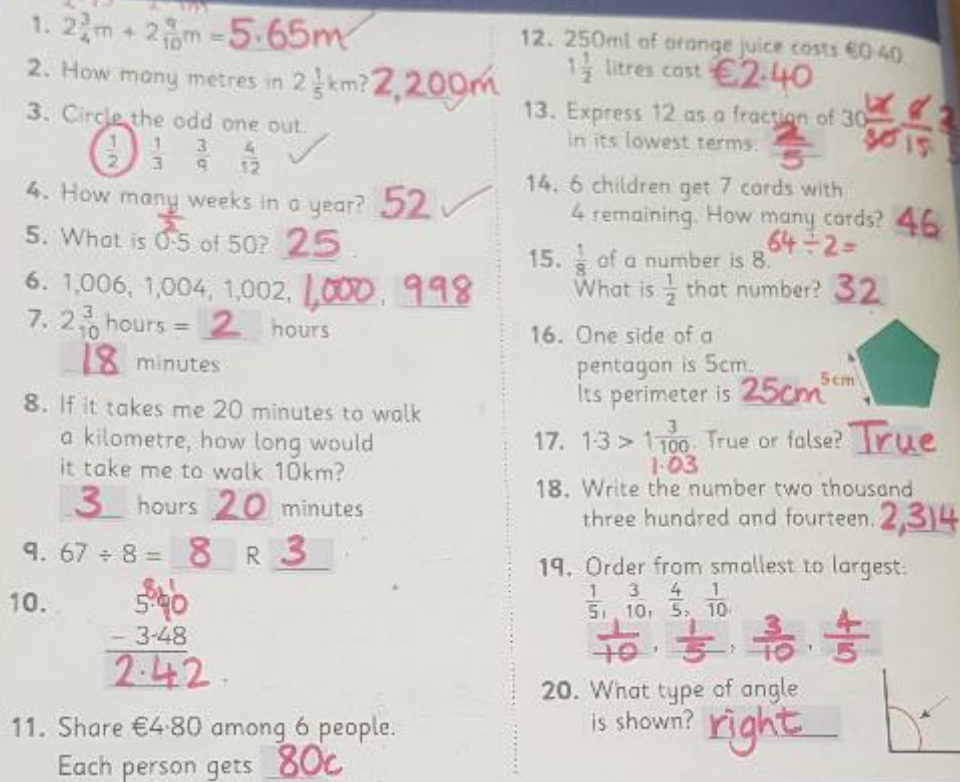 1. 2 3/4 m + 2 9/10 m = 5.65m
2. How many metres in 2 1/5 km? 2,200m
3. Circle the odd one out.
1/2 1/3 3/9 4/12
4. How many weeks in a year? 52
5. What is 0·5 of 50? 25
6. 1,006, 1,004, 1,002, 1,000, 998
7. 2 3/10 hours = 2 hours
18 minutes
8. If it takes me 20 minutes to walk
a kilometre, how long would
it take me to walk 10km?
3 hours 20 minutes
9. 67 ÷ 8 = 8 R 3
10. 5·90
- 3·48
2·42
11. Share €4·80 among 6 people.
Each person gets 80c
12. 250ml of orange juice costs €0·40.
1 1/2 litres cost €2.40
13. Express 12 as a fraction of 30 12/30 6/15
in its lowest terms: 2/5
14. 6 children get 7 cards with
4 remaining. How many cards? 46
64 ÷ 2 =
15. 1/8 of a number is 8.
What is 1/2 that number? 32
16. One side of a
pentagon is 5cm.
Its perimeter is 25cm
5cm
17. 1·3 > 1 3/100. True or false? True
1.03
18. Write the number two thousand
three hundred and fourteen. 2,314
19. Order from smallest to largest:
1/5, 3/10, 4/5, 1/10.
1/10, 1/5, 3/10, 4/5
20. What type of angle
is shown? right